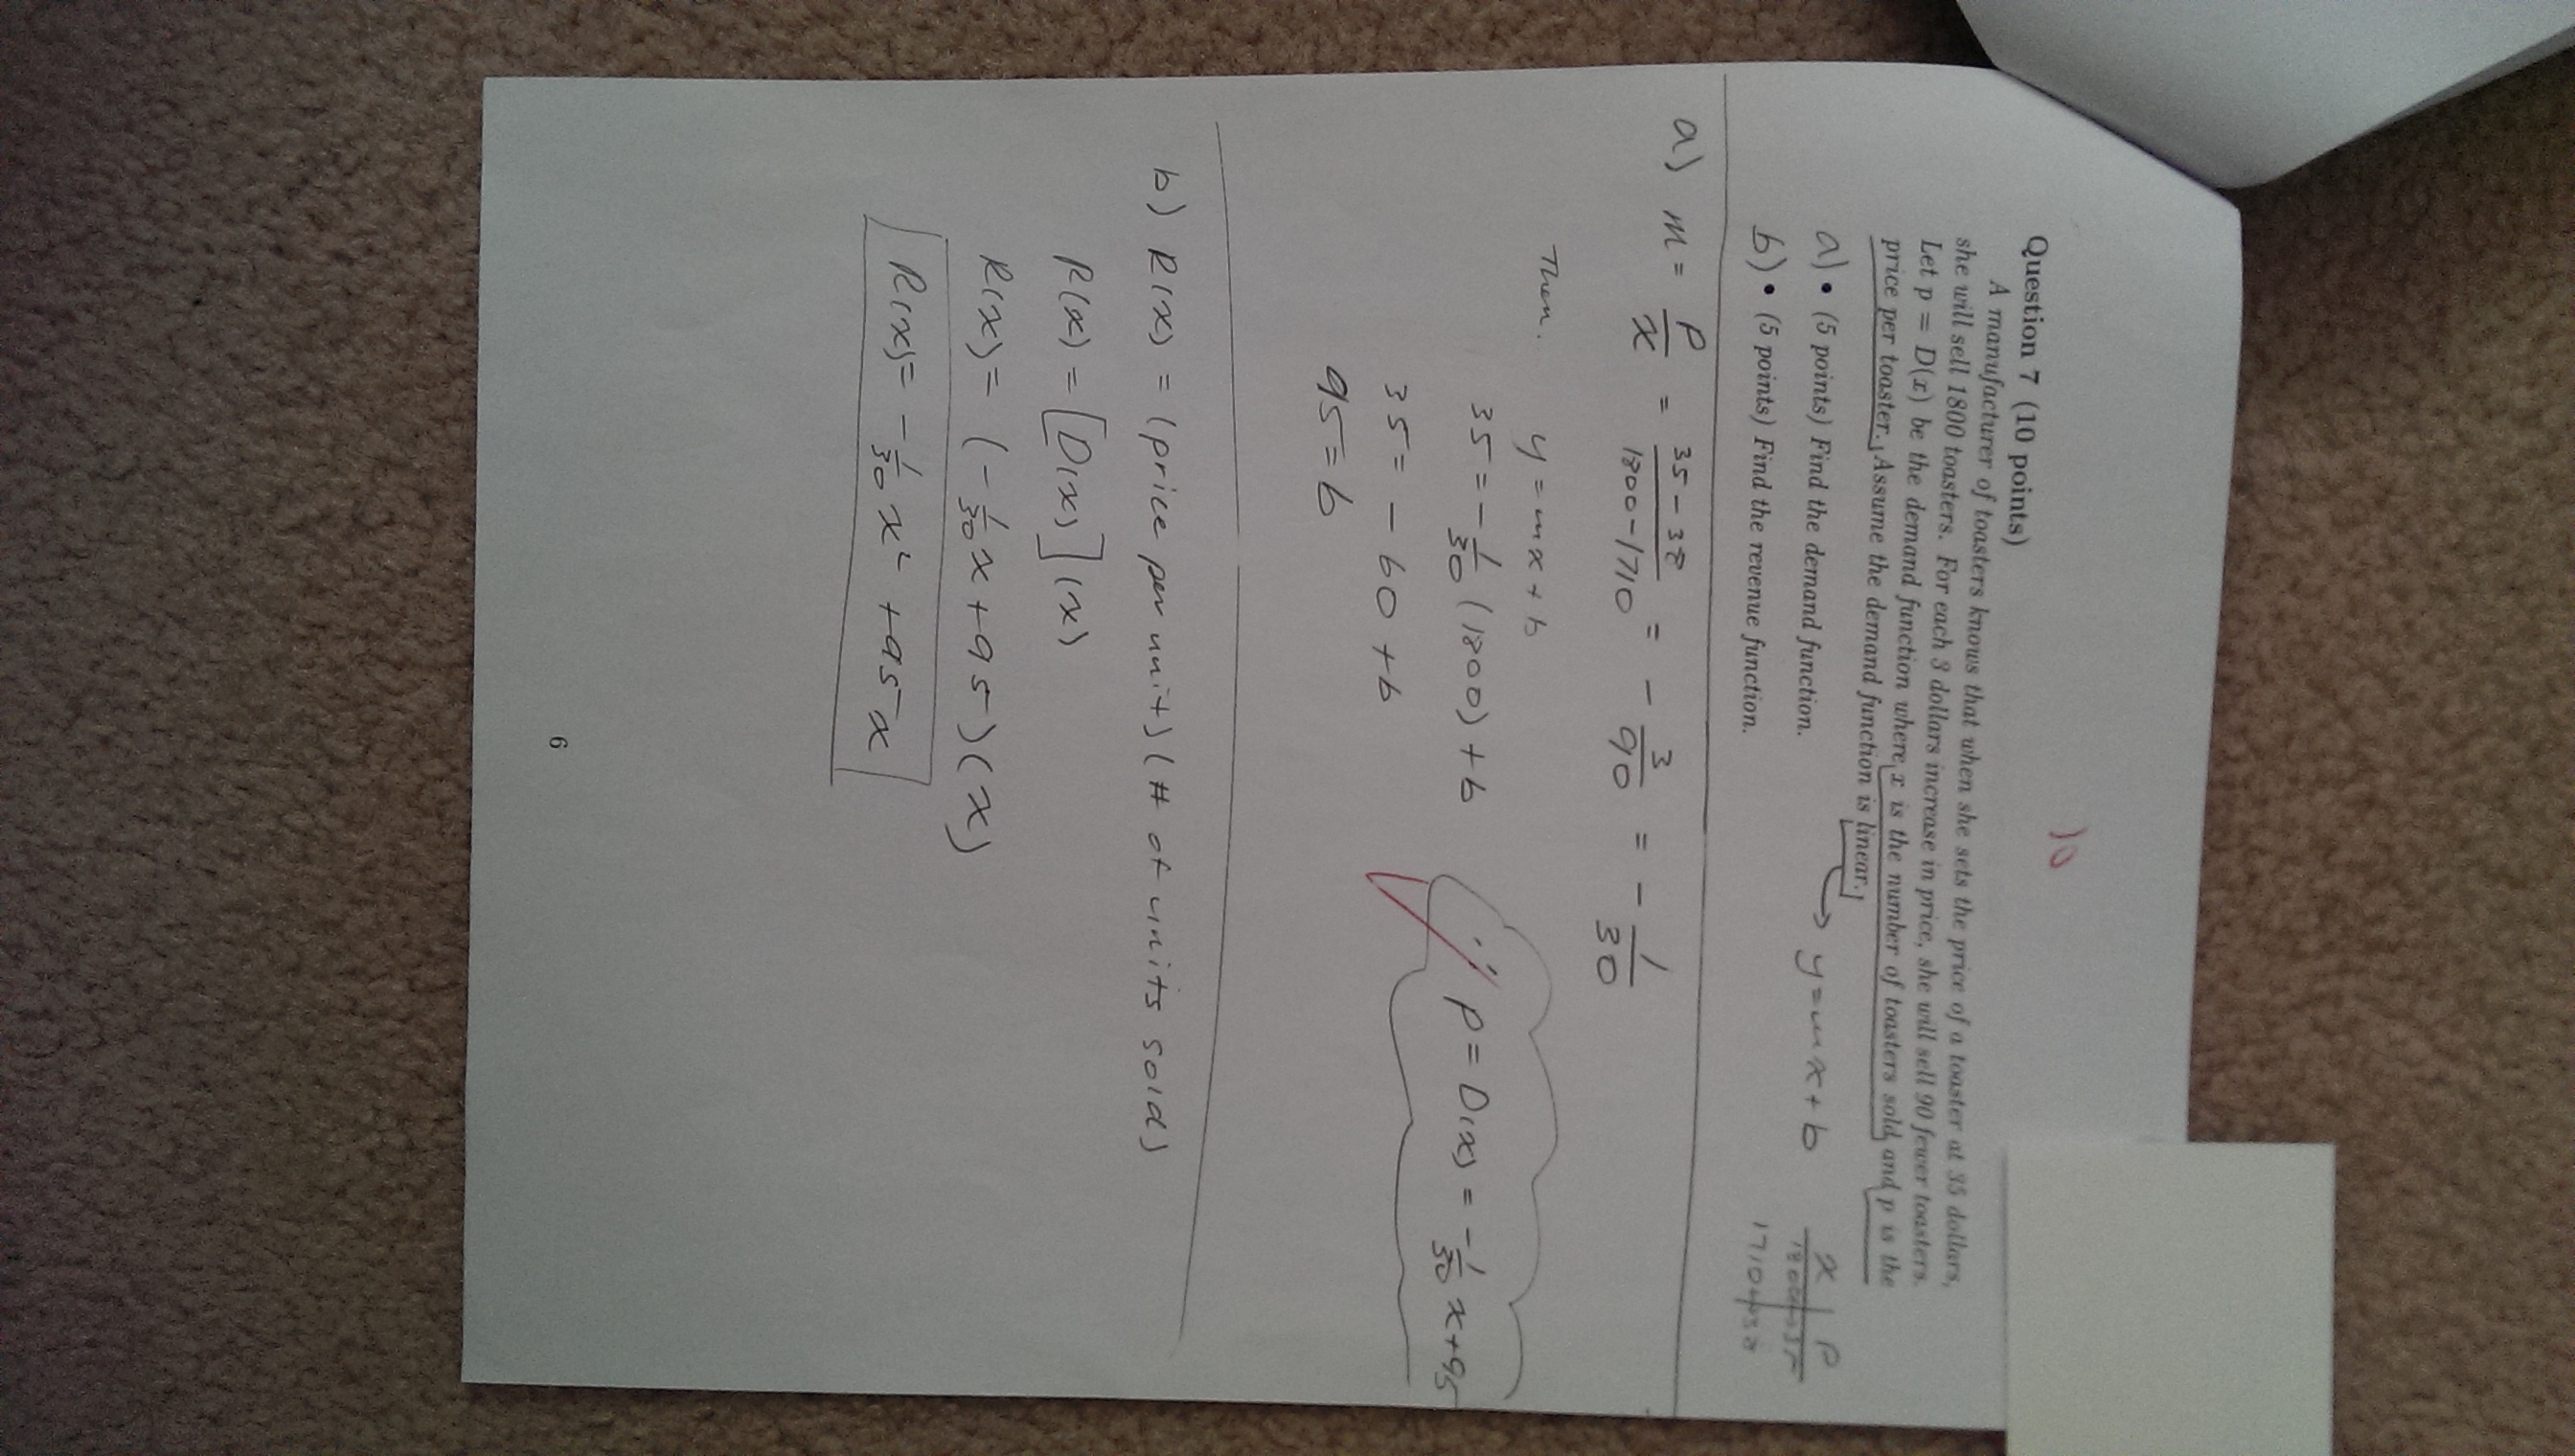 10
Question 7 (10 points)
A manufacturer of toasters knows that when she sets the price of a toaster at 35 dollars,
she will sell 1800 toasters. For each 3 dollars increase in price, she will sell 90 fewer toasters.
Let p = D(x) be the demand function where x is the number of toasters sold and p is the
price per toaster. Assume the demand function is linear.
→ y = mx + b
x | p
1800 35
1710 38
a) • (5 points) Find the demand function.
b) • (5 points) Find the revenue function.
a) m = p/x = (35-38)/(1800-1710) = -3/90 = -1/30
Then. y = mx + b
35 = -1/30 (1800) + b
35 = -60 + b
95 = b
∴ p = D(x) = -1/30 x + 95
b) R(x) = (price per unit)(# of units sold)
R(x) = [D(x)](x)
R(x) = (-1/30 x + 95)(x)
R(x) = -1/30 x² + 95x
6